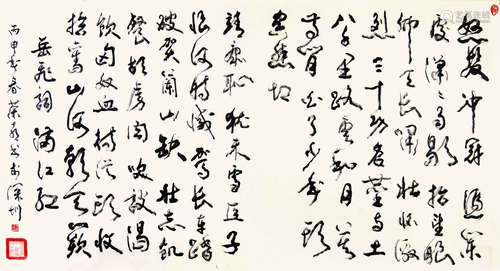 怒髮冲冠憑欄
處瀟瀟雨歇抬望眼
仰天長嘯壯懷激
烈三十功名塵與土
八千里路雲和月莫
等閒白了少年頭
空悲切
靖康恥猶未雪臣子
恨何時滅駕長車踏
破賀蘭山缺壯志飢
餐胡虜肉笑談渴
飲匈奴血待從頭收
拾舊山河朝天闕
岳飛詞滿江紅
丙申年春榮書於深圳